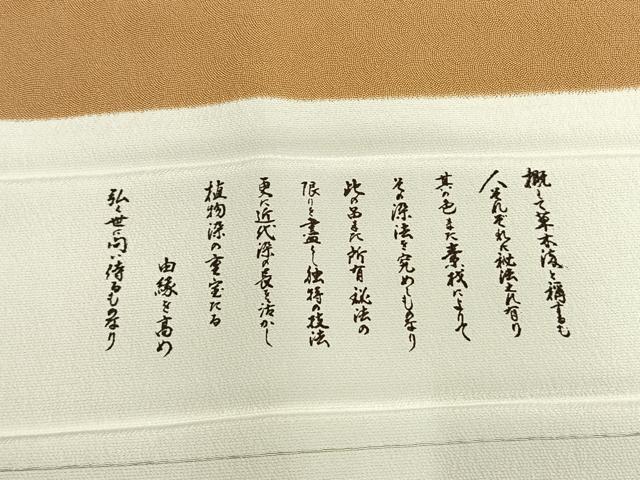 概して草木染と稱するも
人それぞれに秘法これ有り
其の色また素材によりて
その染法を究めしものなり
此の品また所有秘法の
限りを盡し独特の技法
更に近代染の長を活かし
植物染の重宝たる
由縁を高め
弘く世に問い待るものなり